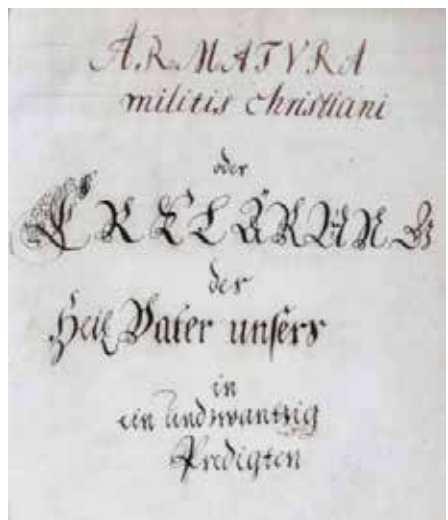 ARMATVRA
militis christiani
oder
ERCLÄRUNG
der
Heil Vater unsers
in
ein undzwantzig
Predigten